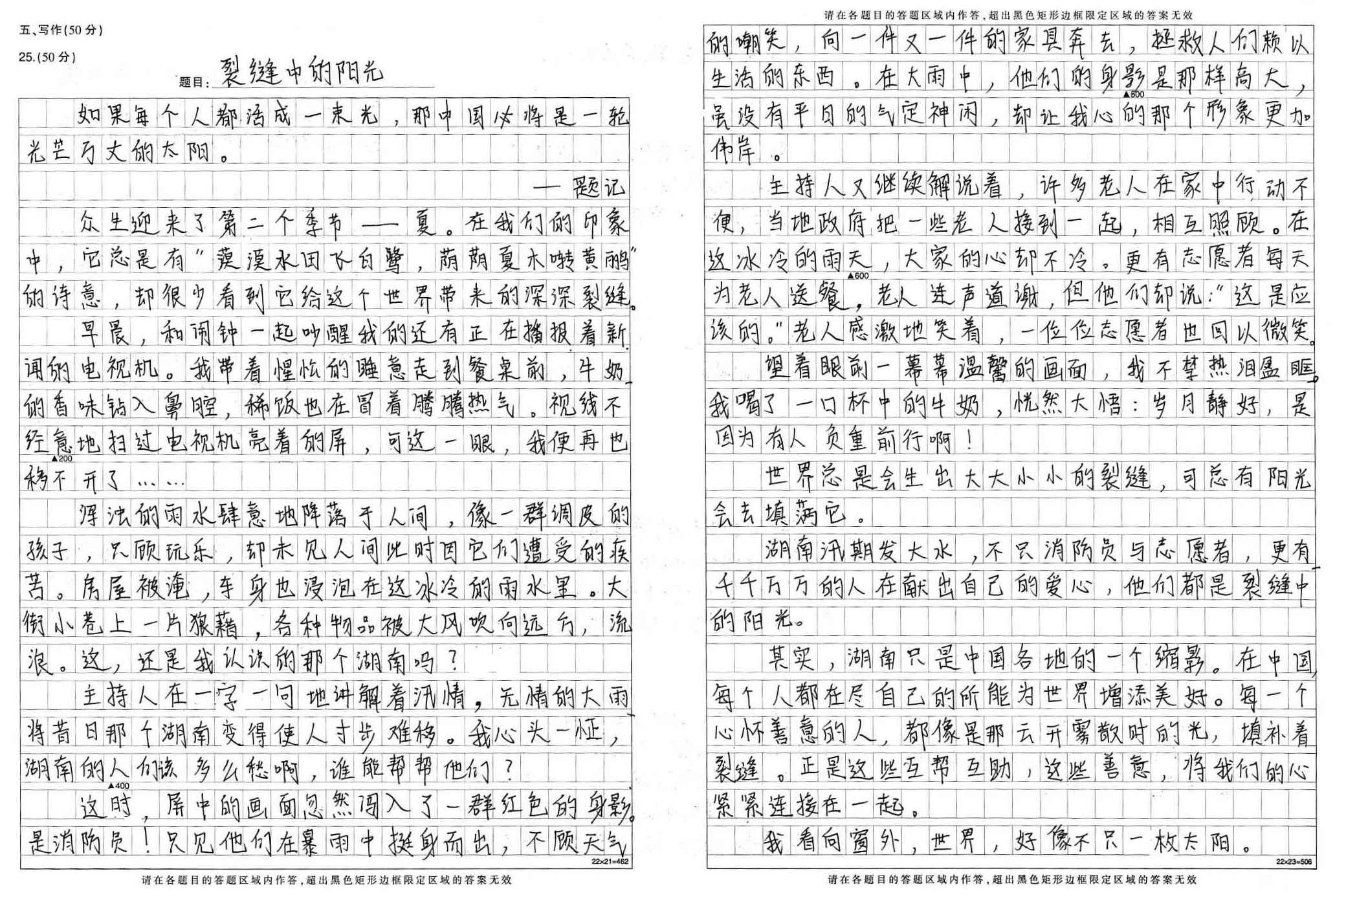 五、写作(50分)
25.(50分)
题目: 裂缝中的阳光
如果每个人都活成一束光，那中国必将是一轮
光芒万丈的太阳。
— 题记
众生迎来了第二个季节——夏。在我们的印象
中，它总是有“漠漠水田飞白鹭，荫荫夏木啭黄鹂”
的诗意，却很少看到它给这个世界带来的深深裂缝。
早晨，和闹钟一起吵醒我的还有正在播报着新
闻的电视机。我带着惺忪的睡意走到餐桌前，牛奶
的香味钻入鼻腔，稀饭也在冒着腾腾热气。视线不
经意地扫过电视机亮着的屏，可这一眼，我便再也
▲200
移不开了……
浑浊的雨水肆意地降落于人间，像一群调皮的
孩子，只顾玩乐，却未见人间此时因它们遭受的疾
苦。房屋被淹，车身也浸泡在这冰冷的雨水里。大
街小巷上一片狼藉，各种物品被大风吹向远方，流
浪。这，还是我认识的那个湖南吗？
主持人在一字一句地讲解着汛情，无情的大雨
将昔日那个湖南变得使人寸步难移。我心头一怔，
湖南的人们该多么愁啊，谁能帮帮他们？
▲400
这时，屏中的画面忽然闯入了一群红色的身影。
是消防员！只见他们在暴雨中挺身而出，不顾天气
22×21=462
请在各题目的答题区域内作答,超出黑色矩形边框限定区域的答案无效
请在各题目的答题区域内作答,超出黑色矩形边框限定区域的答案无效
的嘲笑，向一件又一件的家具奔去，拯救人们赖以
生活的东西。在大雨中，他们的身影是那样高大，
▲500
虽没有平日的气定神闲，却让我心的那个形象更加
伟岸。
主持人又继续解说着，许多老人在家中行动不
便，当地政府把一些老人接到一起，相互照顾。在
这冰冷的雨天，大家的心却不冷。更有志愿者每天
▲600
为老人送餐，老人连声道谢，但他们却说：“这是应
该的。”老人感激地笑着，一位位志愿者也回以微笑。
望着眼前一幕幕温馨的画面，我不禁热泪盈眶。
我喝了一口杯中的牛奶，恍然大悟：岁月静好，是
因为有人负重前行啊！
世界总是会生出大大小小的裂缝，可总有阳光
会去填满它。
湖南汛期发大水，不只消防员与志愿者，更有
千千万万的人在献出自己的爱心，他们都是裂缝中
的阳光。
其实，湖南只是中国各地的一个缩影。在中国，
每个人都在尽自己的所能为世界增添美好。每一个
心怀善意的人，都像是那云开雾散时的光，填补着
裂缝。正是这些互帮互助，这些善意，将我们的心
紧紧连接在一起。
我看向窗外，世界，好像不只一枚太阳。
22×23=506
请在各题目的答题区域内作答,超出黑色矩形边框限定区域的答案无效